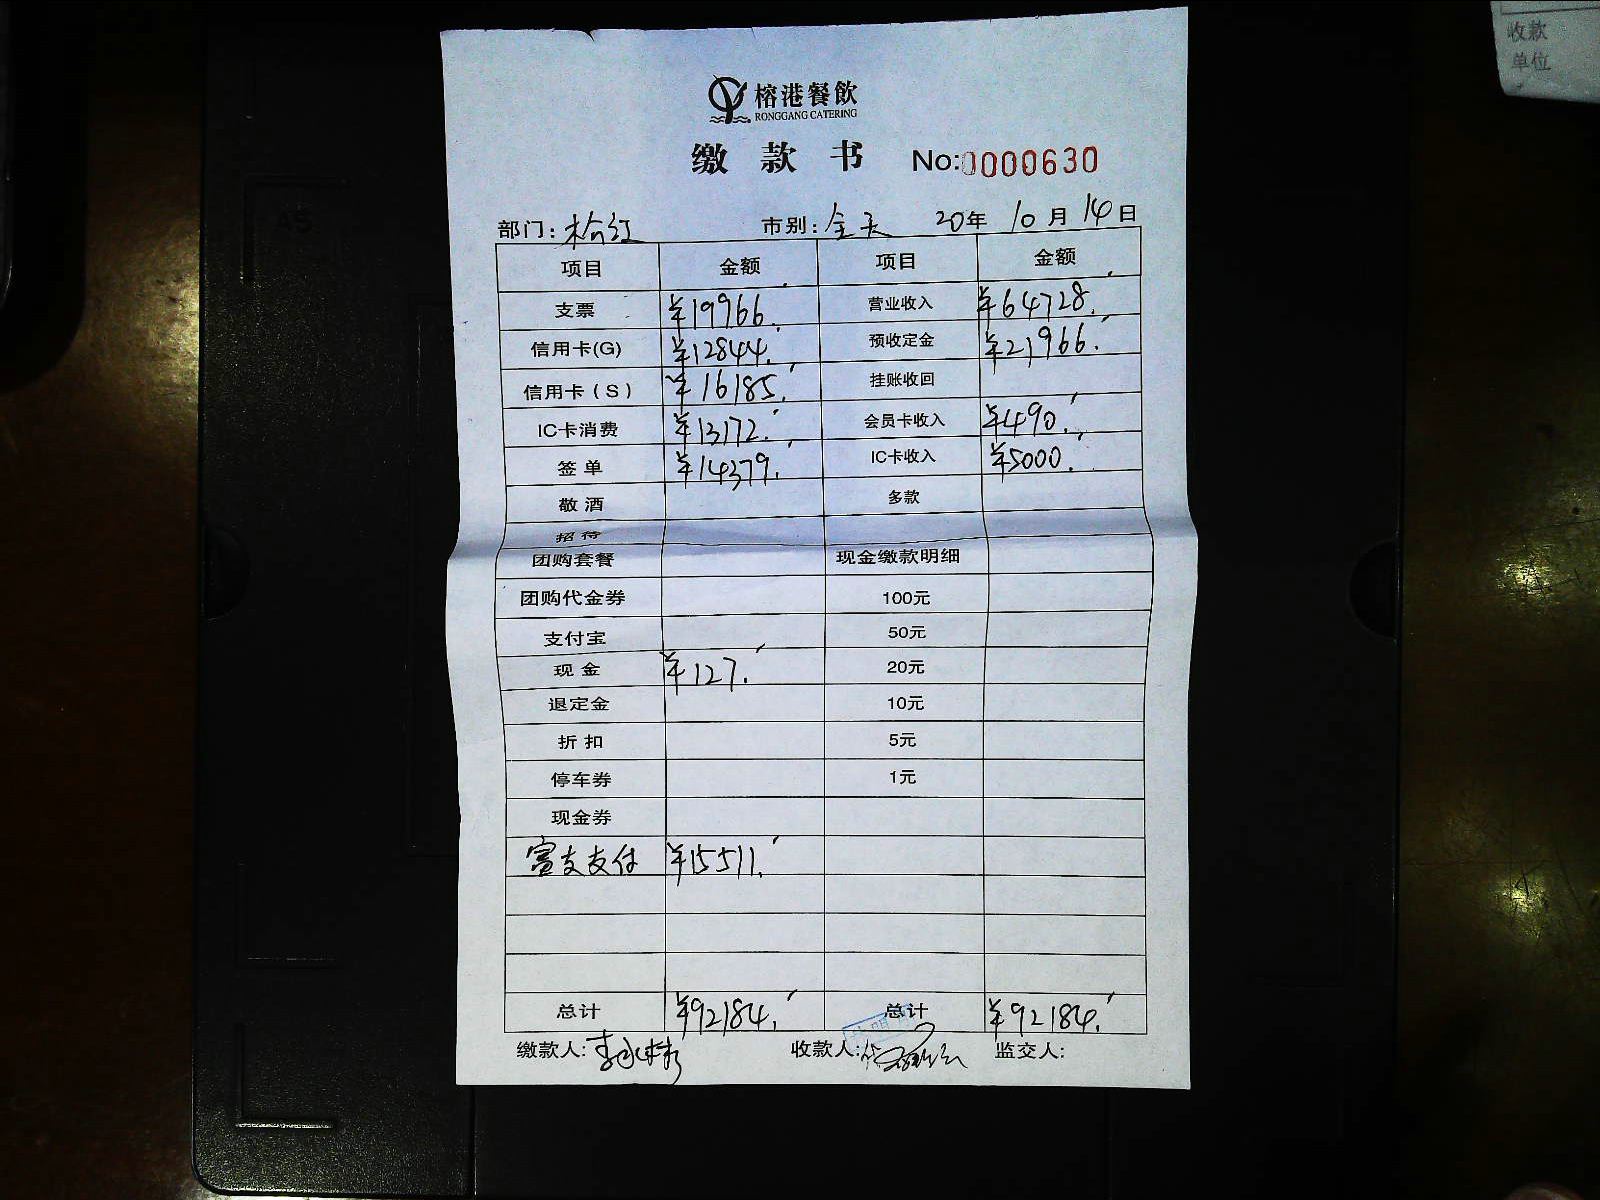 收款
单位
榕港餐飲
RONGGANG CATERING
缴款书 No:0000630
部门: 市别:全天 20年 10月 14日
项目 金额 项目 金额
支票 ¥19966. 营业收入 ¥64728.
信用卡(G) ¥12844. 预收定金 ¥21966.
信用卡(S) ¥16185. 挂账收回
IC卡消费 ¥13172. 会员卡收入 ¥490.
签单 ¥14379. IC卡收入 ¥5000.
敬酒 多款
招待
团购套餐 现金缴款明细
团购代金券 100元
支付宝 50元
现金 ¥127. 20元
退定金 10元
折扣 5元
停车券 1元
现金券
支付 ¥15511.
总计 ¥92184. 总计 ¥92184.
缴款人: 收款人: 监交人: